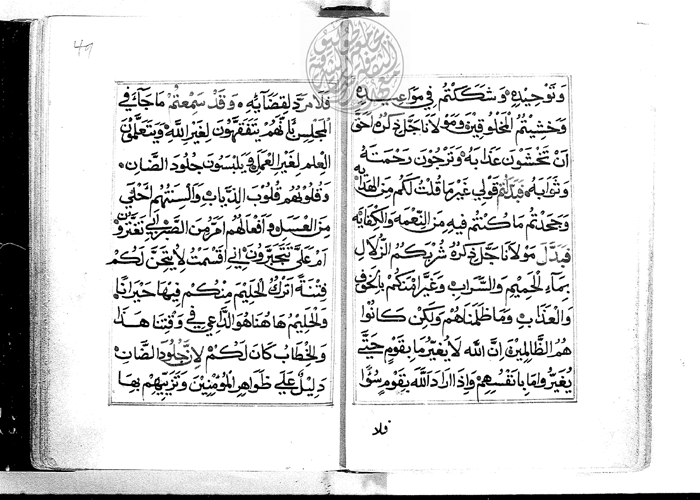 وتوحيده وشككتم في مواعيده
وخشيتم المخلوقين ومولانا جل ذكره احق
ان تخشون عذابه وترجون رحمته
وثوابه فبدلتم قولي غير ما قلت لكم من الهدايه
وجحدتم ما كنتم فيه من النعمه والكفايه
فبدل مولانا جل ذكره شربكم الزلال
بماء الحميم والشراب وغير امنكم بالخوف
والعذاب وما ظلمناهم ولكن كانوا
هم الظالمين ان الله لا يغير ما بقوم حتى
يغيروا ما بانفسهم واذا اراد الله بقوم سوًا
فلا
47
فلا مرد لقضايه وقد سمعتم ما جاء في
المجلس بانهم يتفقهون لغير الله ويتعلمون
العلم لغير العمل يلبسون جلود الضان
وقلوبهم قلوب الذياب والسنتهم احلى
من العسل وافعالهم امر من الصبر ابي تغترون
ام علي تتجبرون اني اقسمت لاتيحن لكم
فتنة اترك الحليم منكم فيها حيرانا
والحليم ها هنا هو الداعي في وقتنا هذا
والخطاب كان لكم لان جلود الضان
دليل على ظواهر المؤمنين وتزييهم بها